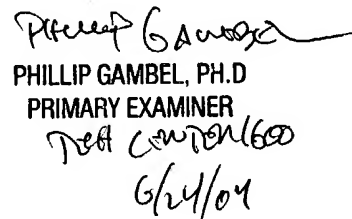 Phillip Gambel
PHILLIP GAMBEL, PH.D
PRIMARY EXAMINER
Tech Center 1600
6/24/04